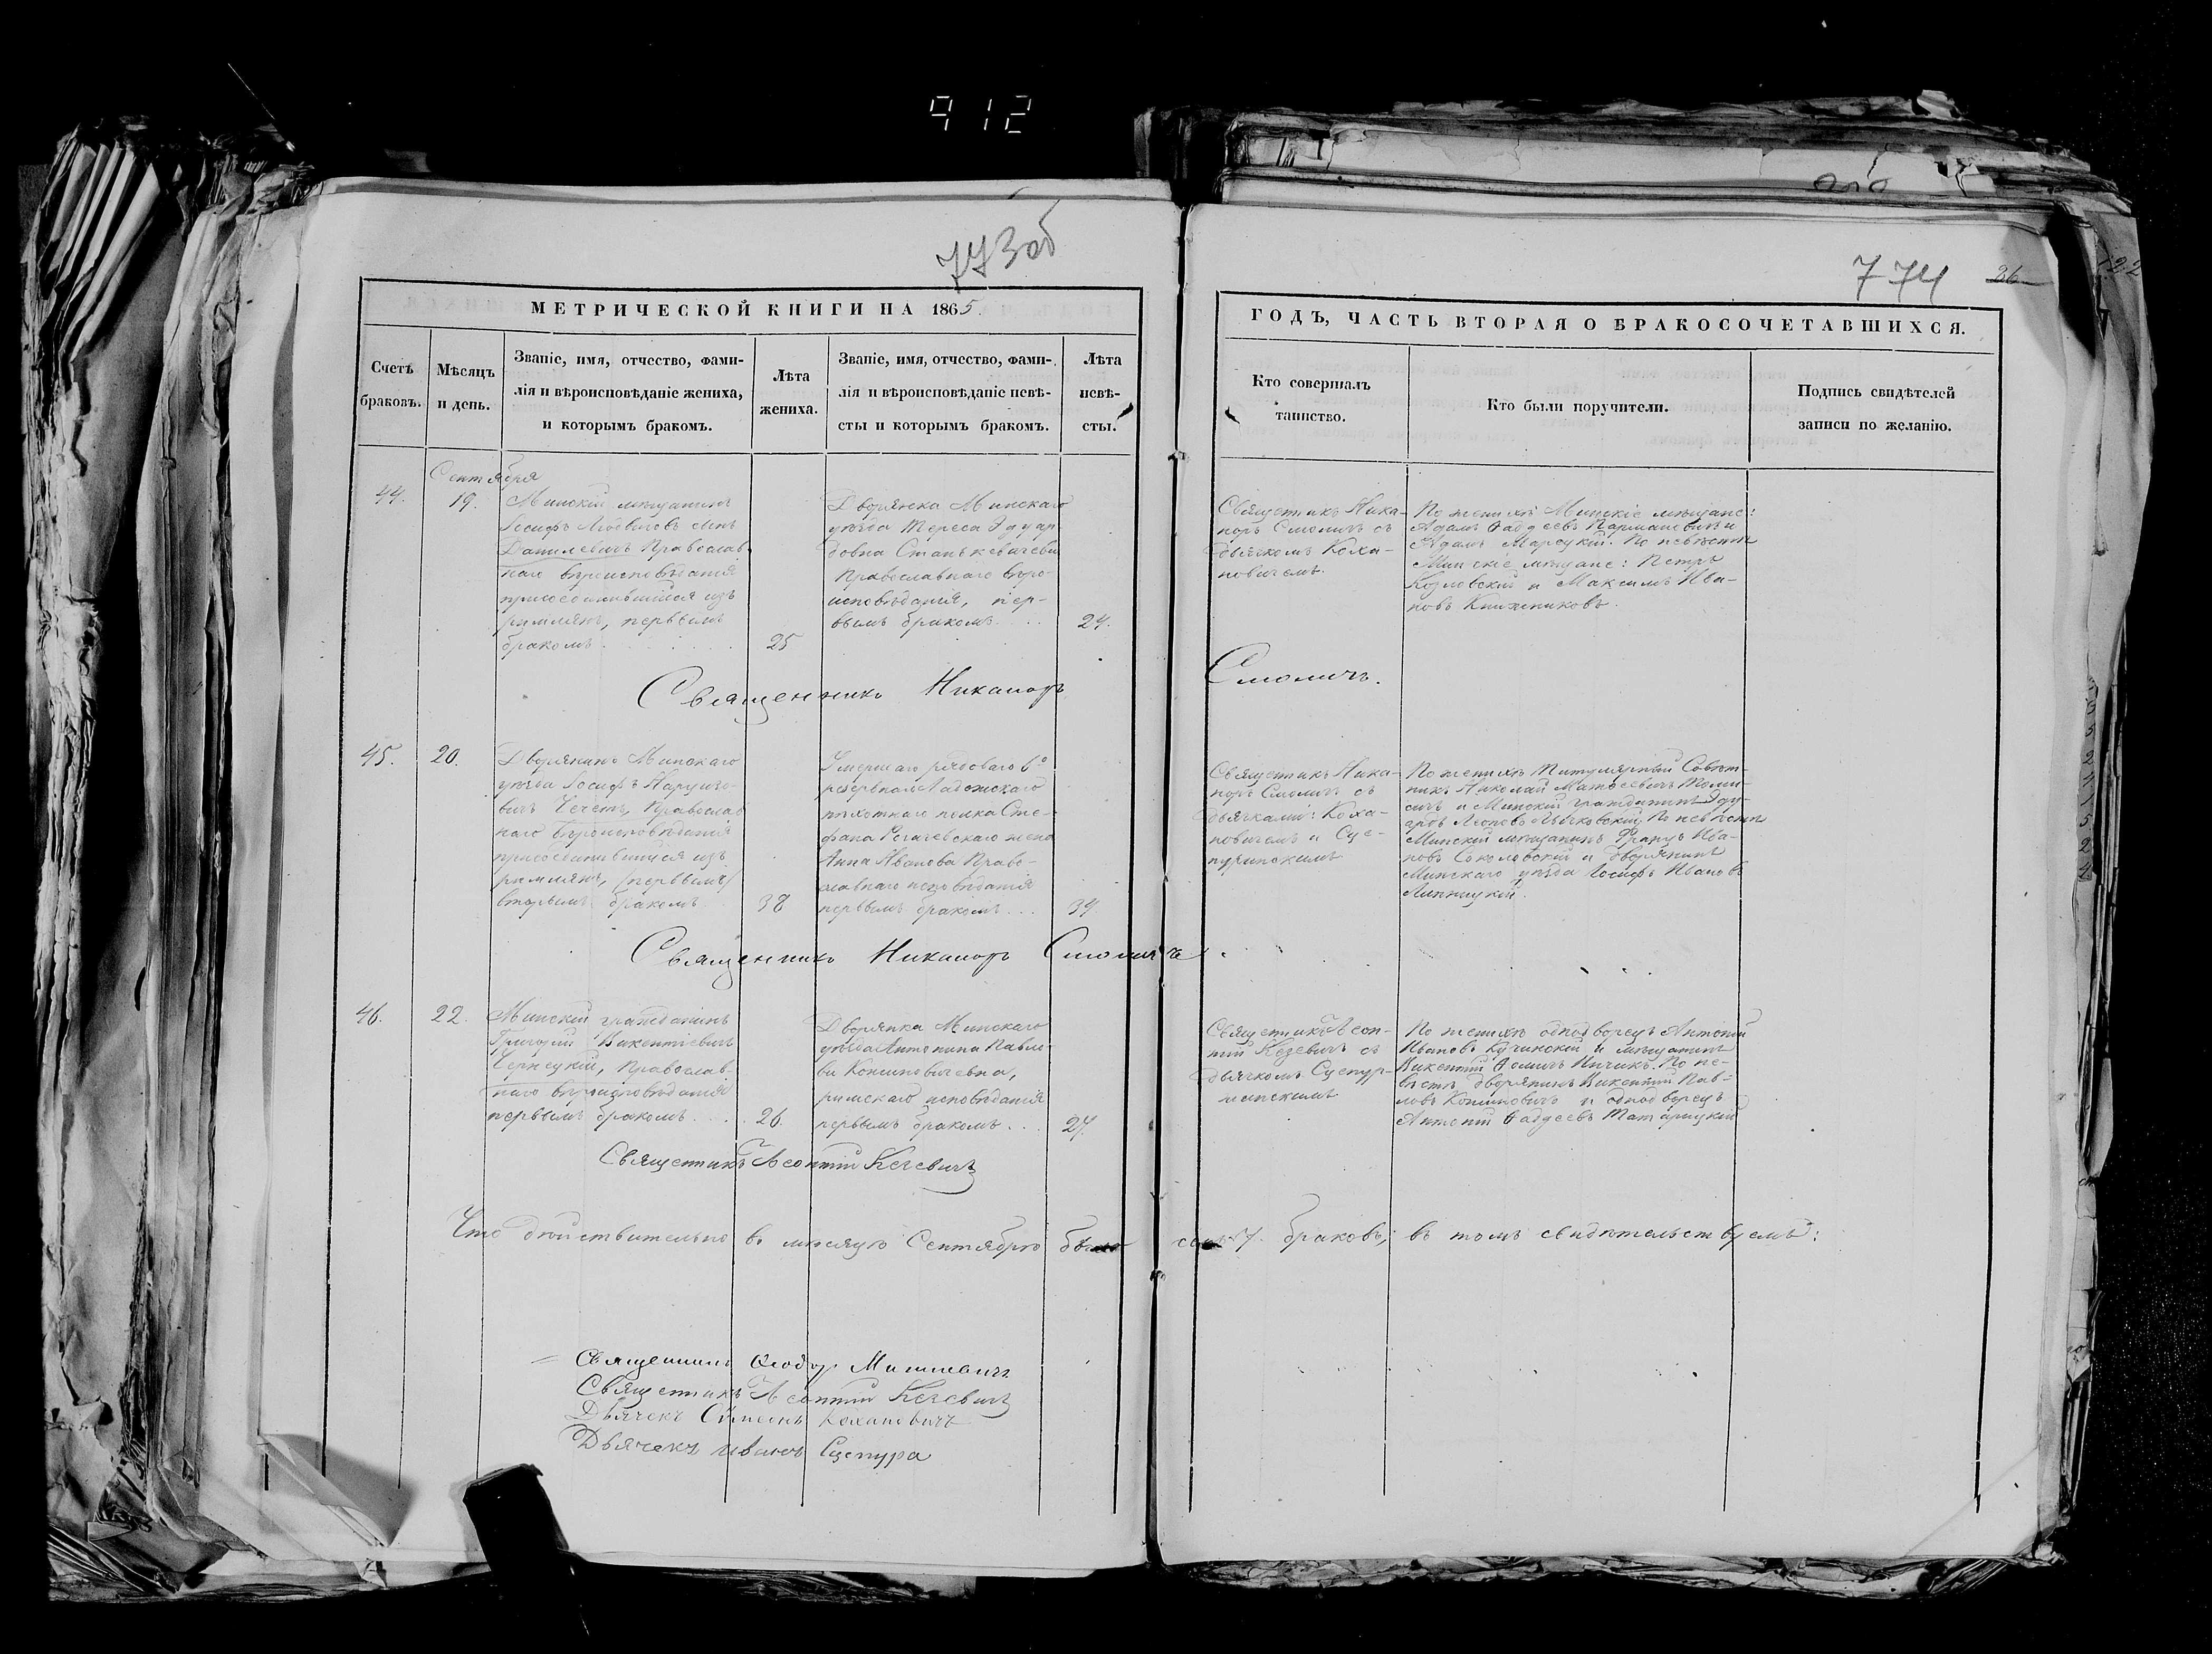 912
773об
774 36
122
МЕТРИЧЕСКОЙ КНИГИ НА 1865.
Счетъ
браковъ.
Мѣсяцъ
и день.
Званіе, имя, отчество, фами-
лія и вѣроисповѣданіе жениха,
и которымъ бракомъ.
Лѣта
жениха.
Званіе, имя, отчество, фами-
лія и вѣроисповѣданіе невѣ-
сты и которымъ бракомъ.
Лѣта
невѣ-
сты.
ГОДЪ, ЧАСТЬ ВТОРАЯ О БРАКОСОЧЕТАВШИХСЯ.
Кто совершалъ
таинство.
Кто были поручители.
Подпись свидѣтелей
записи по желанію.
Сентября
44.
19.
Минскій мѣщанинъ
Іосифъ сынъ
Данилевичъ Православ-
наго вѣроисповѣданія
присоединившійся изъ
римлянъ, первымъ
бракомъ
25
Дворянка Минскаго
уѣзда Тереса Эдуар-
довна Станькевичева
Православнаго вѣро-
исповѣданія, пер-
вымъ бракомъ
24.
Священникъ Ника-
норъ Смоличъ съ
дьячкомъ Коха-
новичемъ.
По женихѣ Минскіе мѣщане:
Адамъ Фаддеевъ Пармановичъ и
Адамъ Марецкій. По невѣстѣ
Минскіе мѣщане: Петръ
Козловскій и Максимъ Ива-
новъ Книжниковъ.
Священникъ Никаноръ Смоличъ.
45.
20.
Дворянинъ Минскаго
уѣзда Іосифъ Нарушо-
вичъ Чечетъ, Православ
наго вѣроисповѣданія
присоединившійся изъ
римлянъ, (первымъ)
вторымъ бракомъ
38
Умершаго рядоваго 6го
резервнаго Ладожскаго
пѣхотнаго полка Сте-
фана Рогачевскаго жена
Анна Иванова Право-
славнаго исповѣданія
первымъ бракомъ
34.
Священникъ Ника-
норъ Смоличъ съ
дьячками: Коха-
новичемъ и Сце-
пуринскимъ
По женихѣ Титулярный Совѣт-
никъ Николай Матвеевичъ
и Минскій гражданинъ Эду-
ардъ Леоновъ По невѣстѣ
Минскій мѣщанинъ Францъ Ива-
новъ Соколовскій и дворянинъ
Минскаго уѣзда Іосифъ Ивановъ
Липницкій.
Священникъ Никаноръ Смоличъ.
46.
22.
Минскій гражданинъ
Григорій Викентіевичъ
Чернецкій, Православ-
наго вѣроисповѣданія
первымъ бракомъ
26.
Дворянка Минскаго
уѣзда Антонина Павло-
ва Кониновичевна,
римскаго исповѣданія
первымъ бракомъ
24.
Священникъ Леон-
тій Кезевичъ съ
дьячкомъ Сцепур-
жинскимъ
По женихѣ однодворецъ Антоній
Ивановъ Кучинскій и мѣщанинъ
Викентій Ѳомичъ Ничикъ. По не-
вѣстѣ дворянинъ Викентій Пав-
ловъ Кониновичъ и однодворецъ
Антоній Фаддеевъ Татарицкій
Священникъ Леонтій Кезевичъ
Что дѣйствительно въ мѣсяцѣ Сентябрѣ было 7. браковъ, въ томъ свидѣтельствуемъ:
Священникъ Ѳеодоръ Миткевичъ
Священникъ Леонтій Кезевичъ
Дьячекъ Симеонъ Кохановичъ
Дьячекъ Иванъ Сцепура